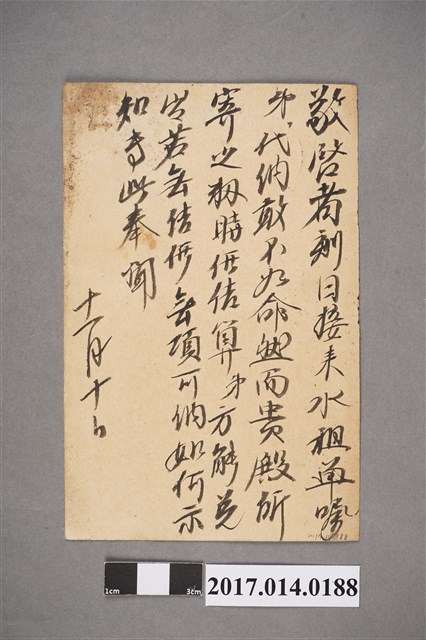 敬啓者刻日接来水租單囑
弟代納敢不如命然而貴殿所
寄之切時價結算弟方能兑
若無結價無項可納如何示
知專此奉聞
十一月十日
1cm
3cm
2017.014.0188